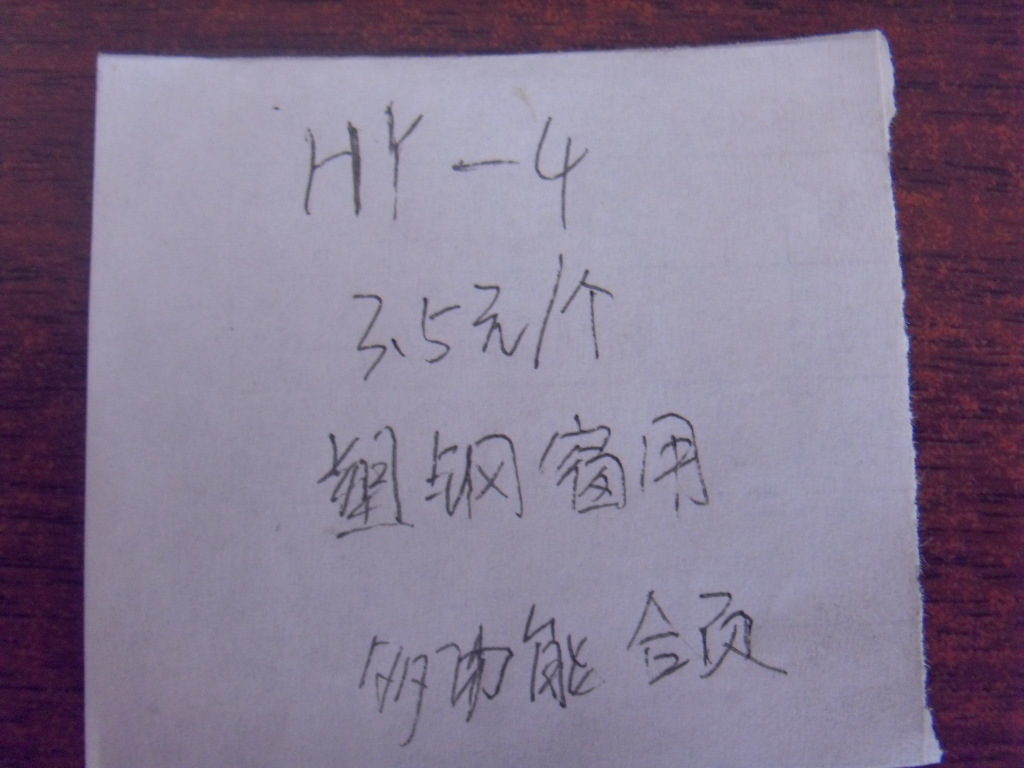 HY-4
3.5元/个
塑钢窗用
多功能合页